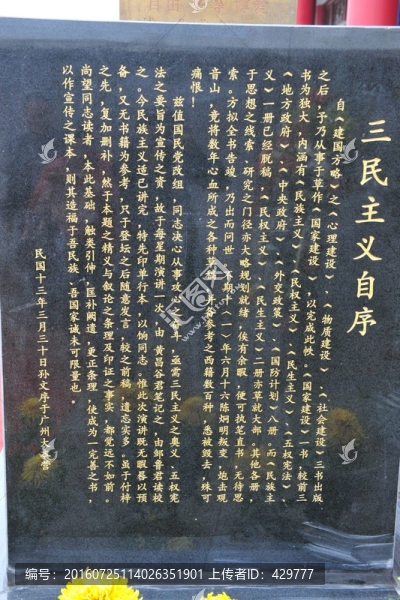 三民主义自序
自《建国方略》之《心理建设》、《物质建设》、《社会建设》三书出版
之后，予乃从事于草作《国家建设》，以完成此帙。《国家建设》一书，较前三
书为独大，内涵有《民族主义》、《民权主义》、《民生主义》、《五权宪法》、
《地方政府》、《中央政府》、《外交政策》、《国防计划》八册。而《民族主
义》一册已经脱稿，《民权主义》、《民生主义》二册亦草就大部。其他各册，
于思想之线索、研究之门径亦大略规划就绪，俟有余暇，便可执笔直书，无待思
索。方拟全书告竣，乃出而问世，不期十（一）年六月十六陈炯明叛变，炮击观
音山，竟将数年心血所成之各种草稿，并备参考之西籍数百种，悉被毁去，殊可
痛恨！
兹值国民党改组，同志决心从事攻心之奋斗，亟需三民主义之奥义、五权宪
法之要旨为宣传之资，故于每星期演讲一次，由黄昌谷君笔记之，由邹鲁君读校
之。今民族主义适已讲完，特先印单行本，以饷同志。惟此次演讲既无暇晷以预
备，又无书籍为参考，只于登坛之后随意发言，较之前稿，遗忘实多。虽于付梓
之先，复加删补，然于本题之精义与叙论之条理及印证之事实，都觉远不如前。
尚望同志读者，本此基础，触类引伸，匡补阙遗，更正条理，使成为一完善之书，
以作宣传之课本，则其造福于吾民族、吾国家诚未可限量也。
民国十三年三月三十日孙文序于广州大本营
编号：20160725114026351901 上传者ID：429777